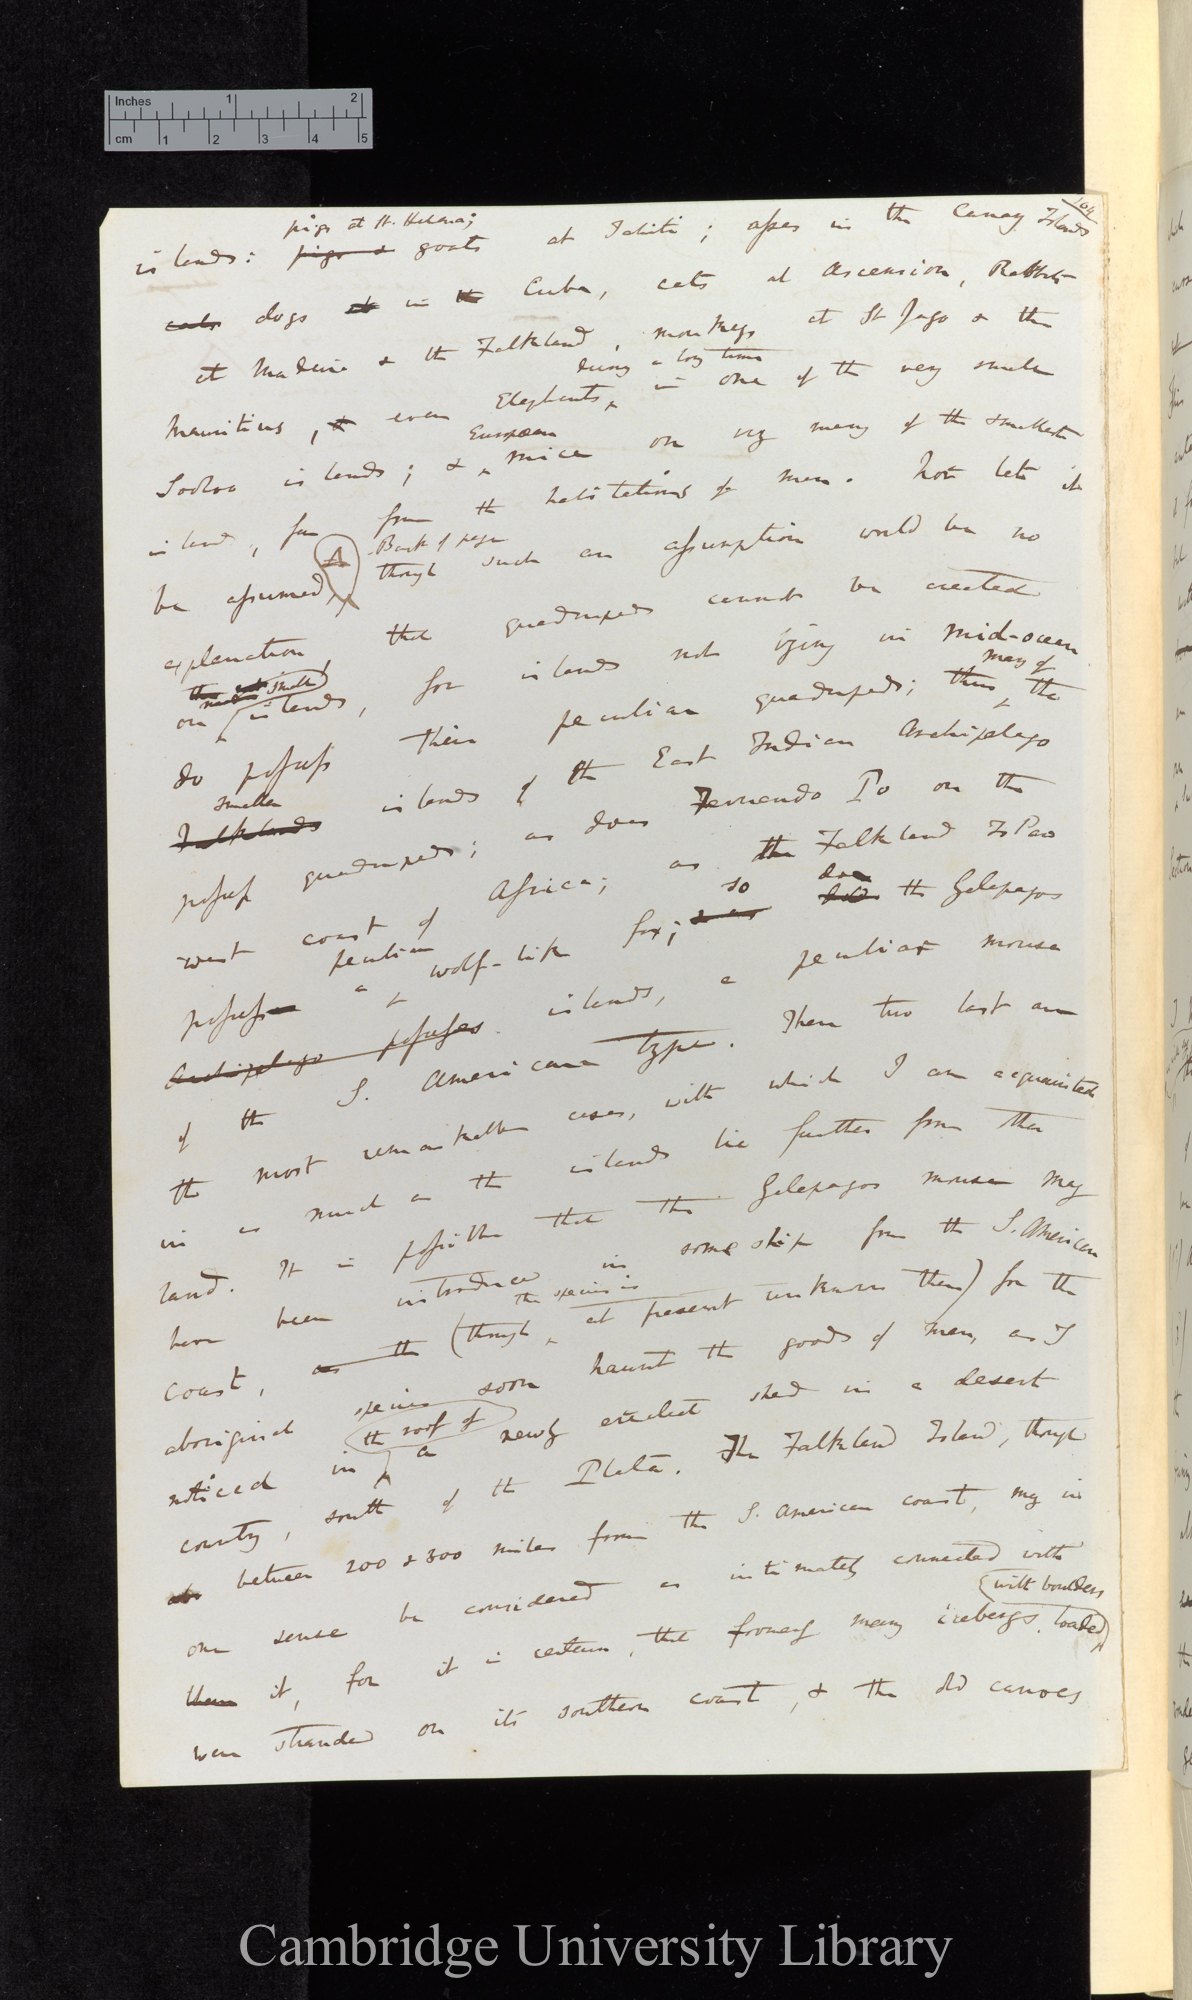 Inches 1 2
cm 1 2 3 4 5
104
pigs at St. Helena;
islands: pigs & goats at Tahiti; asses in the Canary Islands
cats dogs at in the Cuba, cats at Ascension, Rabbits
at Madeira & the Falkland, monkeys at St Jago & the
during a long time
Mauritius, & even Elephants, in one of the very small
European
Sooloo islands; & mice on very many of the smallest
islands, far from the habitations of man. Nor let it
A Back of page
be assumed, though such an assumption would be no
explanation that quadrupeds cannot be created
small
on islands, for islands not lying in mid-ocean
many of
do possess their peculiar quadrupeds; thus the
smaller
Falklands islands of the East Indian Archipelago
possess quadrupeds; as does Fernando Po on the
west coast of Africa; as the Falkland Is Pao
peculiar so does
possess a wolf-like fox; & as did the Galapagos
Archipelago possesses islands, a peculiar mouse
of the S. American type. These two last are
the most remarkable cases, with which I am acquainted
in as much as the islands lie further from other
land. It is possible that the Galapagos mouse may
have been introduced in some ship from the S. American
the species is
coast, as the (though at present unknown there) for the
aboriginal species soon haunt the goods of man, as I
the roof of
noticed in a newly erected shed in a desert
country, south of the Plata. The Falkland Island, though
between 200 & 300 miles from the S. American coast, may in
one sense be considered as intimately connected with
with boulders
them it, for it is certain, that formerly many icebergs loaded
were stranded on its southern coast, & the old canoes
Cambridge University Library